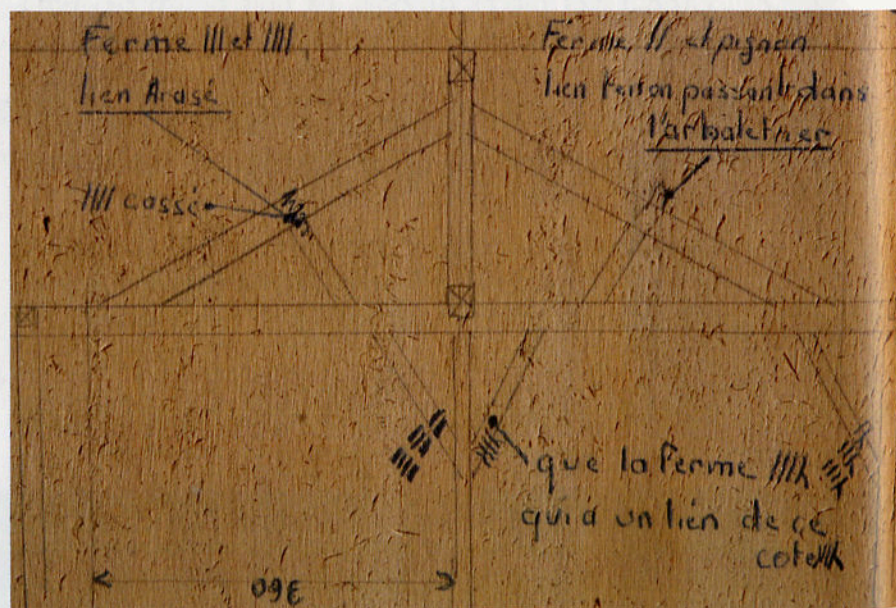 Ferme III et IIII
lien Arasé
IIII cassé
Ferme II et pignon
lien tenon passant dans
l'arbaletrier
que la Ferme IIII
qui a un lien de ce
coté
360